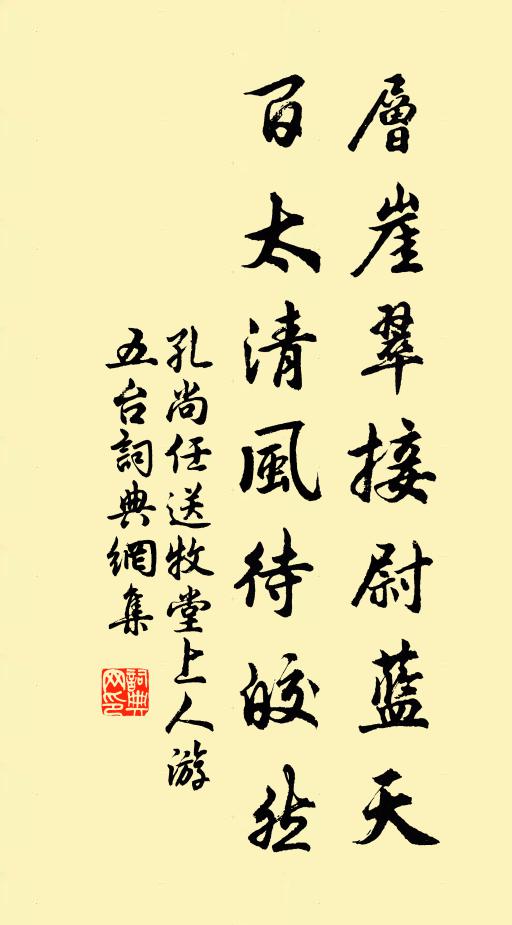 層崖翠接尉藍天
百太清風待皎然
孔尚任送牧堂上人游
五台詞典網集
詞典網印